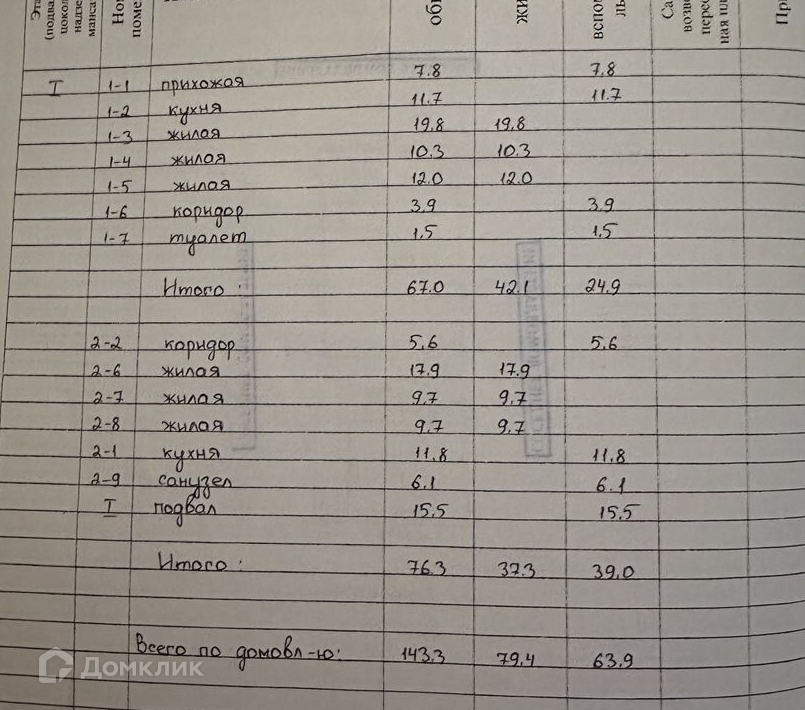 Эта
(подвал
цоколь
надзе
мансат
Ном
помe
общ
жи
вспом
ль
Са
возве
перео
ная пл
Пр
I 1-1 прихожая 7.8 7,8
1-2 кухня 11.7 11.7
1-3 жилая 19,8 19,8
1-4 жилая 10.3 10.3
1-5 жилая 12.0 12.0
1-6 коридор 3.9 3.9
1-7 туалет 1.5 1.5
Итого: 67.0 42.1 24.9
2-2 коридор 5.6 5.6
2-6 жилая 17.9 17.9
2-7 жилая 9.7 9.7
2-8 жилая 9.7 9.7
2-1 кухня 11.8 11.8
2-9 санузел 6.1 6.1
I подвал 15.5 15.5
Итого: 76.3 37.3 39.0
Всего по домовл-ю: 143.3 79.4 63.9
Домклик